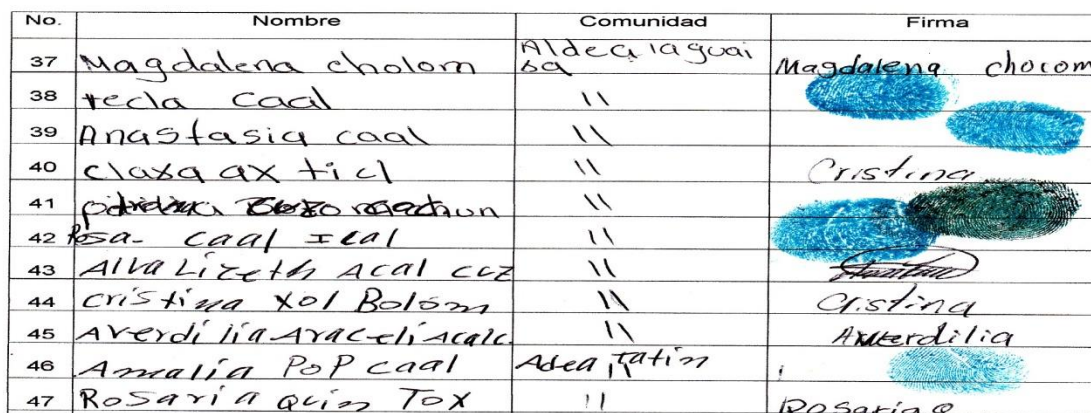 No. Nombre Comunidad Firma
37 Magdalena cholom Aldea laguai sa Magdalena chocom
38 tecla caal 11
39 Anastasia caal 11
40 claxa ax ticl 11 Cristina
41 11
42 Rosa- caal Ical 11
43 Alva Lizeth Acal cuz 11
44 cristina xol Bolóm 11 Cistina
45 Averdilia Araceli Acalc. 11 Averdilia
46 Amalia Pop caal Adea Tatin
47 Rosaria Quin Tox 11 Rosario